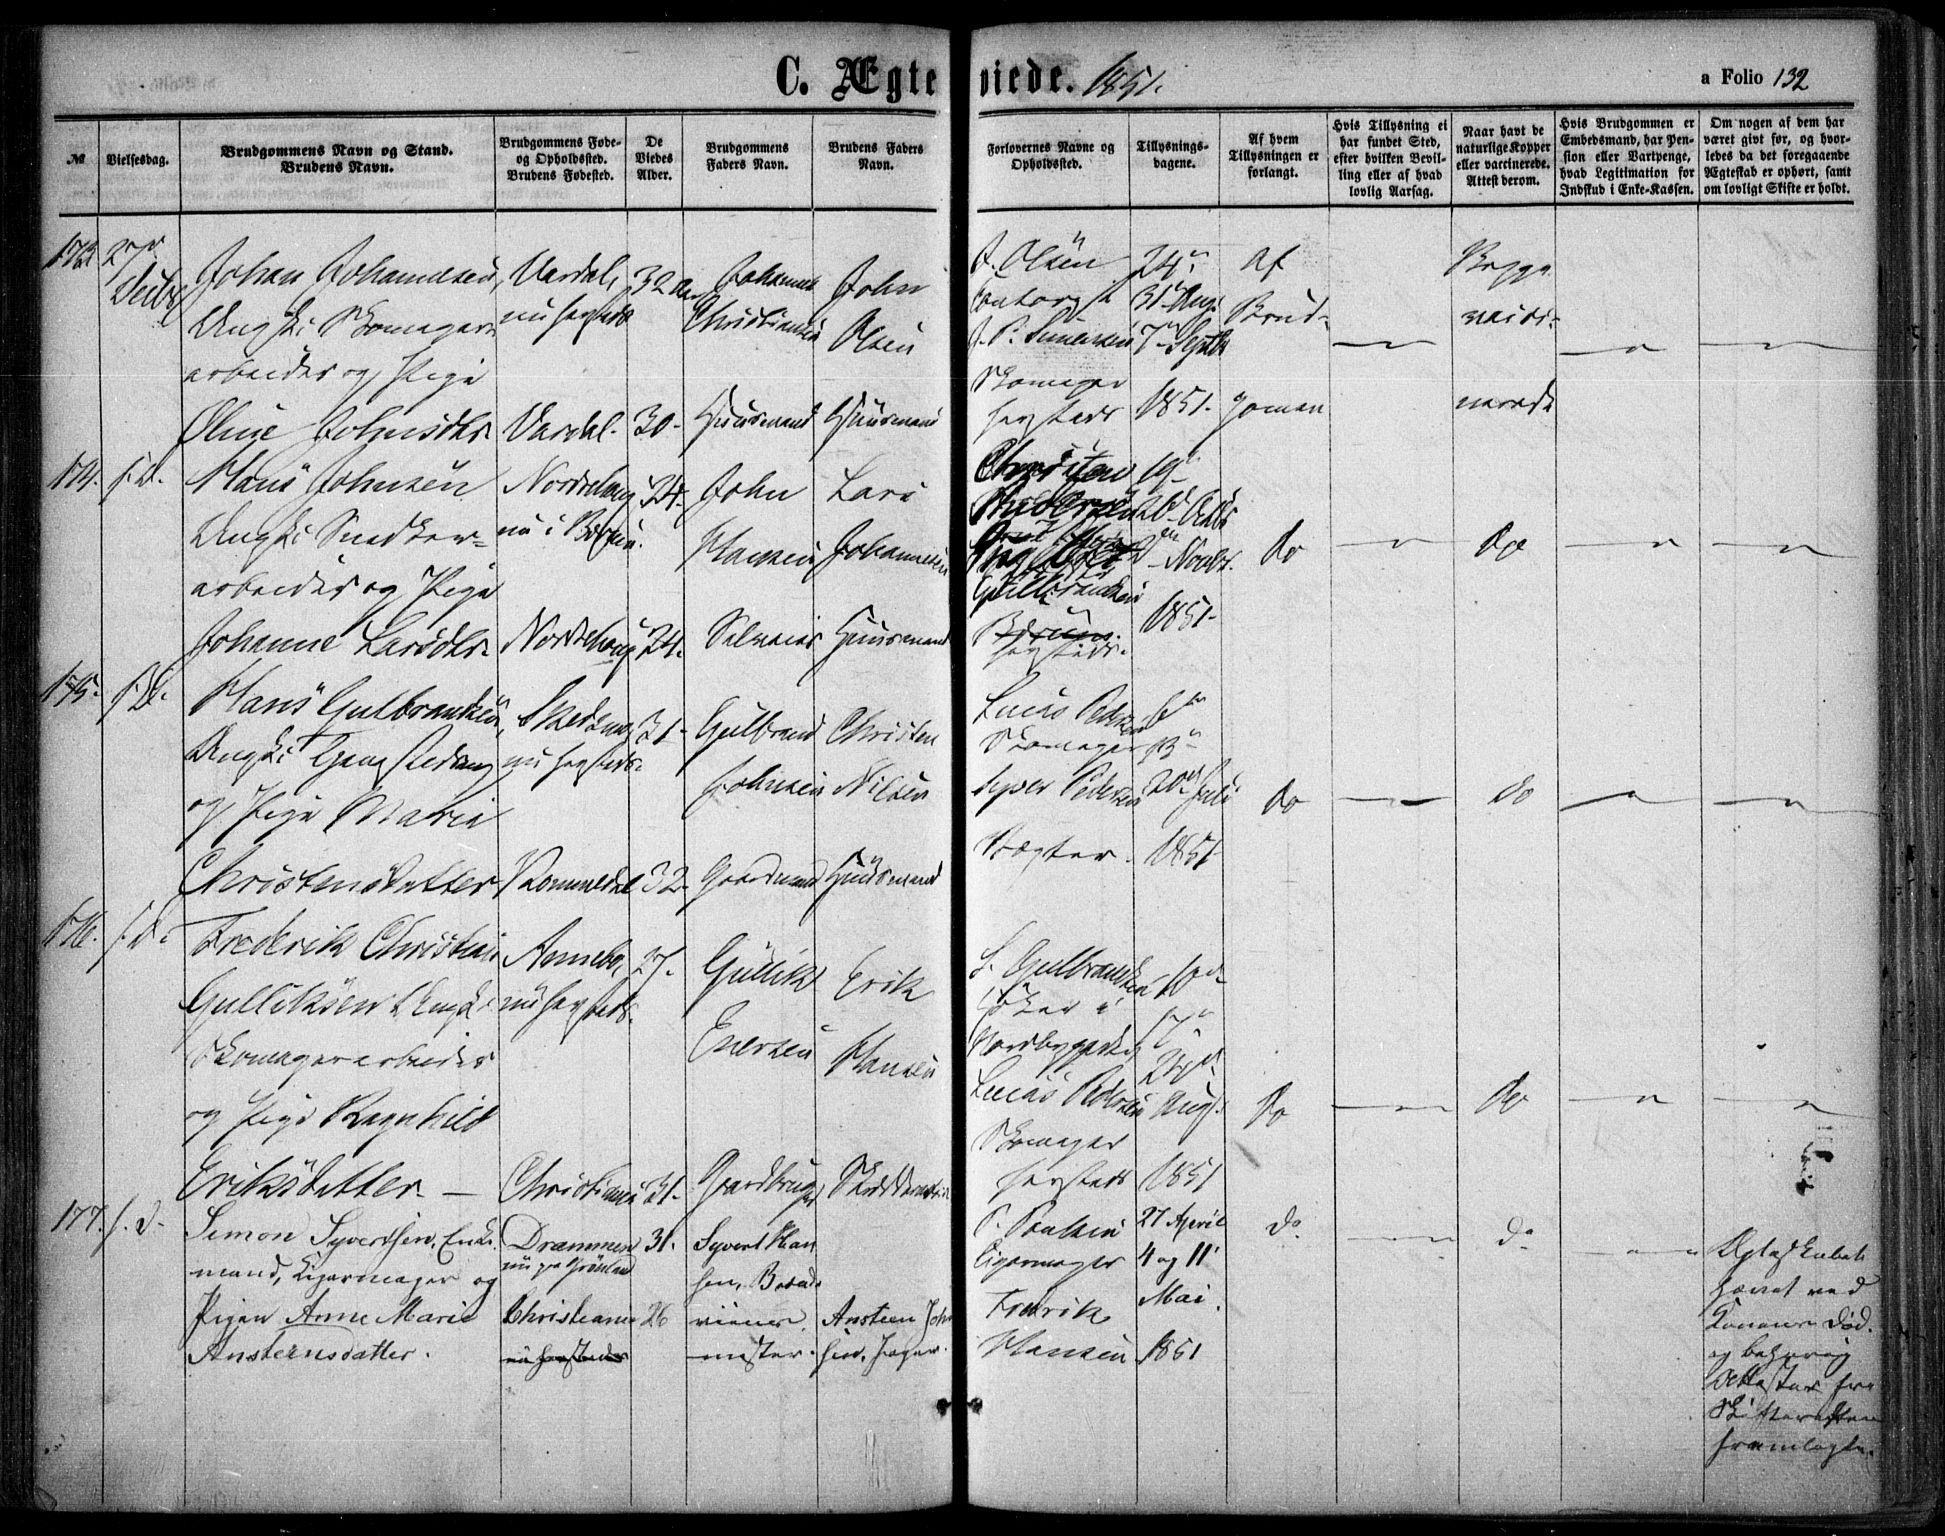 C. Ægteviede. 1851.
a Folio 132
№
Vielsesdag.
Brudgommens Navn og Stand.
Brudens Navn.
Brudgommens Føde-
og Opholdssted.
Brudens Fødested.
De
Viedes
Alder.
Brudgommens
Faders Navn.
Brudens Faders
Navn.
Forlovernes Navne og
Opholdssted.
Tillysnings-
dagene.
Af hvem
Tillysningen er
forlangt.
Hvis Tillysning ei
har fundet Sted,
efter hvilken Bevil-
ling eller af hvad
lovlig Aarsag.
Naar havt de
naturlige Kopper
eller vaccinerede.
Attest derom.
Hvis Brudgommen er
Embedsmand, har Pen-
sion eller Vartpenge,
hvad Legitimation for
Indskud i Enke-Kassen.
Om nogen af dem har
været givt før, og hvor-
ledes da det foregaaende
Ægteskab er ophørt, samt
om lovligt Skifte er holdt.
173
27
Johan Johannesen,
Ungk: Skomager-
arbeider og Pige
Oline Johnsdtr
Vardal,
nu hersteds
Vardal.
32 Aar
30-
Johannes
Christiansen
Huusmand
John
Olsen
Huusmand
J. Olsen
Skomager
hersteds
24
31 Aug:
7 Septb
1851.
af
Brud-
gomen
Begge
vacci-
nerede
174.
s. D.
Hans Johnsen
Ungk: Snedker-
arbeider og Pige
Johanne Larsdtr.
Norderhoug
nu i Bærum.
Norderhoug
24.
24.
John
Hansen
Selveier
Lars
Johannesen
Huusmand
Gulbrandsen
hersteds.
19
26 Octbr
2 Novbr.
1851.
do
do
175.
s. D.
Hans Gulbrandsen,
Ungk:
og Pige Maria
Christensdatter
Skedsmo,
nu hersteds.
Rommedal
31-
32-
Gulbrand
Johnsen
Gaardmand
Christen
Nilsen
Huusmand
Lucas Pedersen
Skomager
Syver Pedersen
Vægter.
6
13
20 Juli
1851
do
do
176.
s. D.
Frederik Christian
Gulliksen Ungk:
Skomagerarbeider
og Pige Ragnhild
Eriksdatter
Annebo,
nu hersteds.
Christiania
27.
31.
Gullik
Enersen
Gaardbruger
Erik
Hansen
S. Gulbrandsen
Lucas Pedersen
Skomager
hersteds
10
17
24
Aug:
1851
do
do
177.
s. D.
Simon Syvertsen, Enke-
mand, Cigarmager og
Pigen Anne Marie
Ansteensdatter.
Drammen
nu paa Grønland
Christiania
nu hersteds
31.
26
Syvert Han
sen,
Ansteen John
sen, Jæger.
P. Paulsen
Cigarmager
Fredrik
Hansen
27 April
4 og 11
Mai.
1851
do
do
Ægteskabet
hævet ved
Konens Død.
og behørig
Attester fra
Skifteretten
fremlagte.